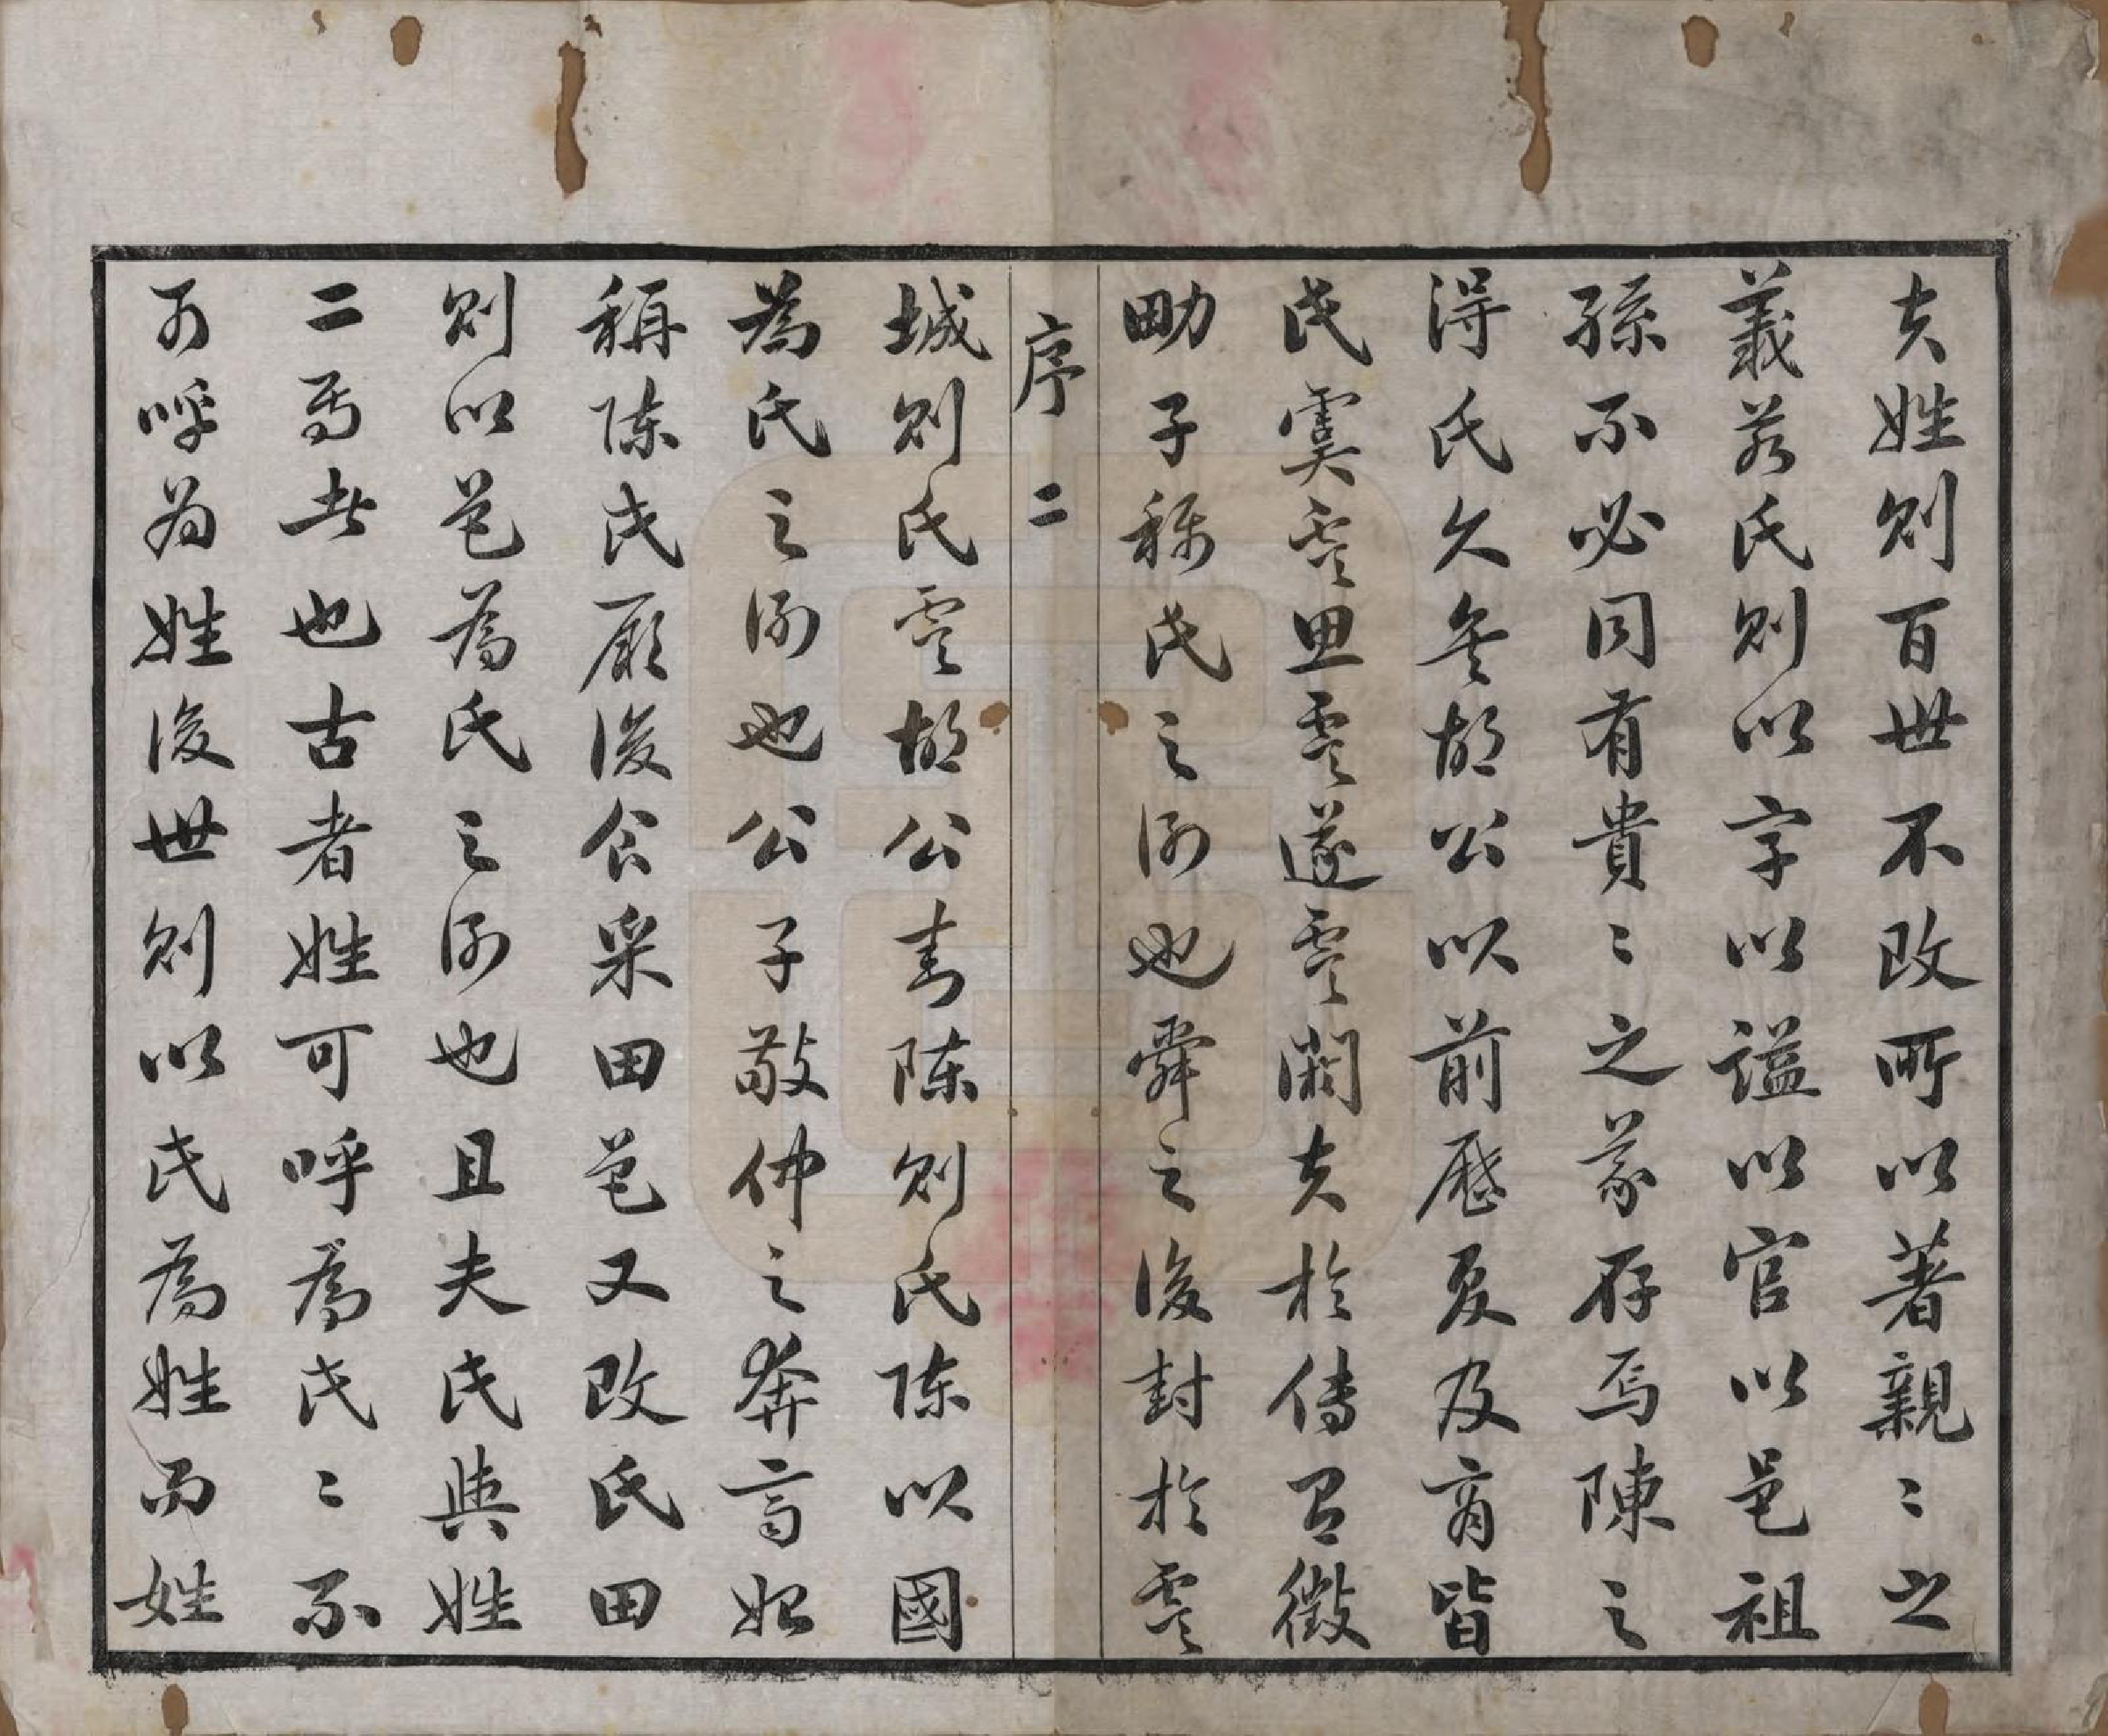 夫姓則百世不改所以著親〻之
義若氏則以字以謚以官以邑祖
孫不必同有貴〻之義存焉陳之
得氏久矣胡公以前歷夏及商皆
氏虞虞思虞遂虞閼夫於傳有徵
男子稱氏之例也舜之後封於虞
序 二
城則氏虞胡公封陳則氏陳以國
為氏之例也公子敬仲之奔齊始
稱陳氏厥後食采田邑又改氏田
則以邑為氏之例也且夫氏與姓
二焉者也古者姓可呼為氏〻不
可呼為姓後世則以氏為姓而姓